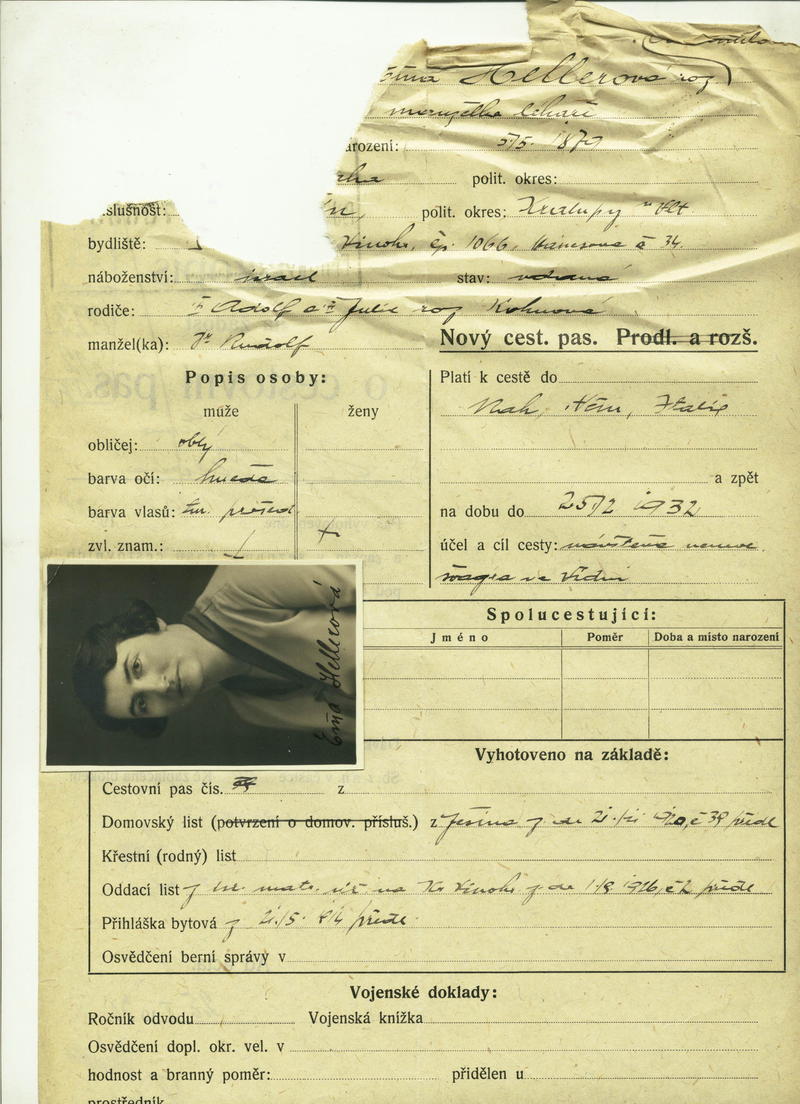 Hellerová roz
manželka lékaře
arození: 5/5. 1879
polit. okres:
slušnost: polit. okres: Kralupy n Vlt
bydliště: Vinohr, čp. 1066, 34.
náboženství: israel stav: vdaná
rodiče: Adolf a Julie roz Kohnová
manžel(ka): Dr Rudolf
Nový cest. pas. Prodl. a rozš.
Popis osoby:
muže ženy
obličej: oblý
barva očí: hnědé
barva vlasů: tm. prošed
zvl. znam.:
Platí k cestě do
Rak, Něm, Italie
a zpět
na dobu do 25/2 1932
účel a cíl cesty: návštěva nemoc.
švagra ve Vídni
Erna Hellerová
Spolucestující:
Jméno Poměr Doba a místo narození
Vyhotoveno na základě:
Cestovní pas čís. z
Domovský list (potvrzení o domov. přísluš.) z předl
Křestní (rodný) list
Oddací list z matr. na Kr Vinohr z 1926, č 2 předl
Přihláška bytová z 21/5. předl
Osvědčení berní správy v
Vojenské doklady:
Ročník odvodu Vojenská knížka
Osvědčení dopl. okr. vel. v
hodnost a branný poměr: přidělen u
prostředník